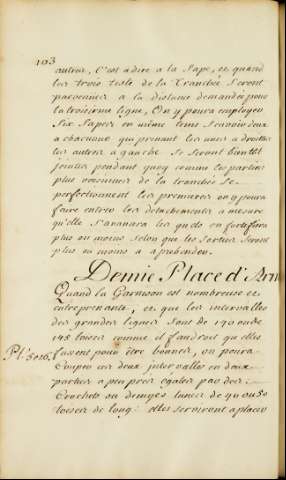 103
autres, C'est a dire a la Sape, et quand
les trois teste de la Tranchée Seront
parvenües a la distance demandée pour
la troisieme ligne, On y poura employer
Six Sapes en même tems Scavoir deux
a chacunne qui prenant les unes a droittes
les autres a gauche Se Seront bientôt
jointes pendant quoy comme les parties
plus voisinnes de la tranchée Se
perfectionnent les premieres on y poura
faire entrer les détachements a mesure
qu'elle S'avancera les quels on fortifiera
plus ou moins Selon que les Sorties Seront
plus ou moins a aprehender.
Demie Place d'Arm
Quand la Garnison est nombreuse et
entreprenante, et que les intervalles
des grandes lignes Sont de 140 ou de
145 toises comme il faudroit qu'elles
fussent pour être bonnes, on poura
Couper ces deux intervalles en deux
parties a peu prés égales par des
Crochets ou demyes lunes de 40 ou 50
toises de long: elles serviront a placer